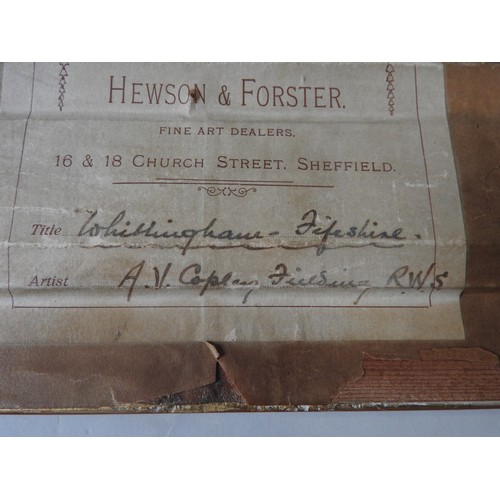 HEWSON & FORSTER.
FINE ART DEALERS,
16 & 18 CHURCH STREET, SHEFFIELD.
Title Whittingham - Fifeshire.
Artist A.V. Copley Fielding R.W.S